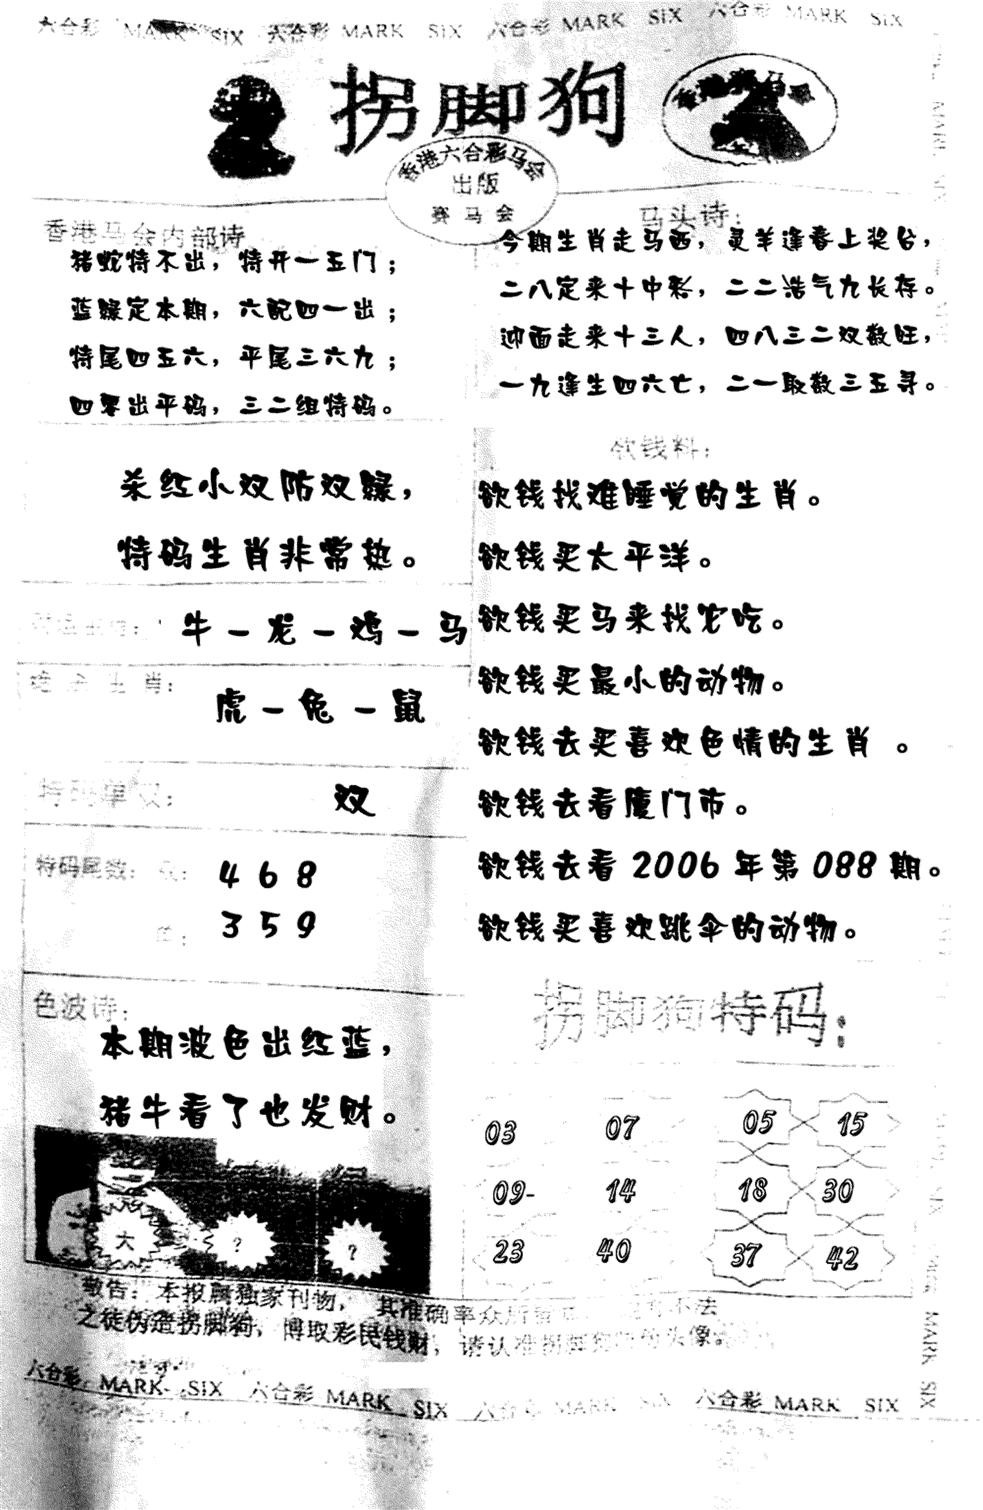 六合彩 MARK SIX 六合彩 MARK SIX 六合彩 MARK SIX 六合彩 MARK SIX
拐脚狗
香港赛马会
香港六合彩马会
出版
赛马会
香港马会内部诗
猪蛇特不出，特开一五门；
蓝绿定本期，六配四一出；
特尾四五六，平尾三六九；
四零出平码，三二组特码。
马头诗：
今期生肖走马西，灵羊逢春上奖台，
二八定来十中彩，二二浩气九长存。
迎面走来十三人，四八三二双数旺，
一九逢生四六亡，二一取数三五寻。
杀红小双防双绿，
特码生肖非常热。
牛－龙－鸡－马
绝杀生肖：
虎－兔－鼠
特码单双：
双
特码尾数：双：
4 6 8
单：
3 5 9
色波诗：
本期波色出红蓝，
猪牛看了也发财。
大 ？ ？
欲钱料：
欲钱找难睡觉的生肖。
欲钱买太平洋。
欲钱买马来找农吃。
欲钱买最小的动物。
欲钱去买喜欢色情的生肖 。
欲钱去看厦门市。
欲钱去看2006年第088期。
欲钱买喜欢跳伞的动物。
拐脚狗特码：
03 07 05 15
09- 14 18 30
23 40 37 42
敬告：本报属独家刊物，其准确率众所 不法
之徒伪造拐脚狗，博取彩民钱财，请认准拐脚狗 头像
六合彩 MARK SIX 六合彩 MARK SIX 六合彩 MARK SIX 六合彩 MARK SIX
MARK SIX